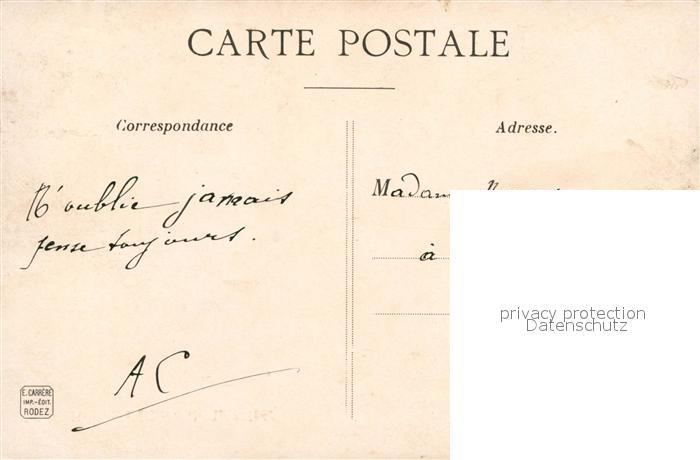 CARTE POSTALE
Correspondance
Adresse.
N'oublie jamais
pense toujours.
AC
E. CARRÈRE
IMP.-ÉDIT.
RODEZ
Madame
à
privacy protection
Datenschutz